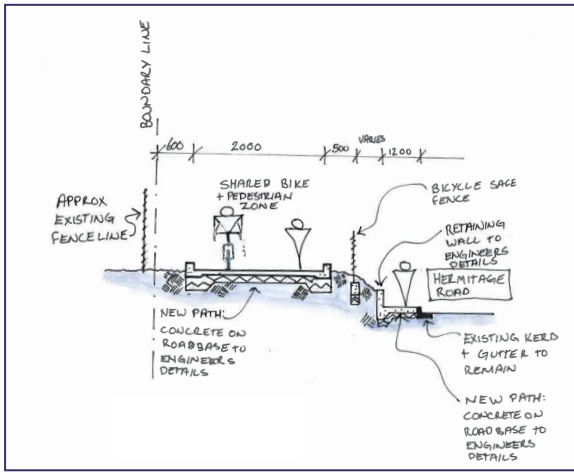 BOUNDARY LINE
600
2000
500
VARIES
1200
APPROX
EXISTING
FENCELINE
SHARED BIKE
+ PEDESTRIAN
ZONE
BICYCLE SAGE
FENCE
RETAINING
WALL TO
ENGINEERS
DETAILS
HERMITAGE
ROAD
NEW PATH:
CONCRETE ON
ROADBASE TO
ENGINEERS
DETAILS
EXISTING KERB
+ GUTTER TO
REMAIN
NEW PATH:
CONCRETE ON
ROADBASE TO
ENGINEERS
DETAILS